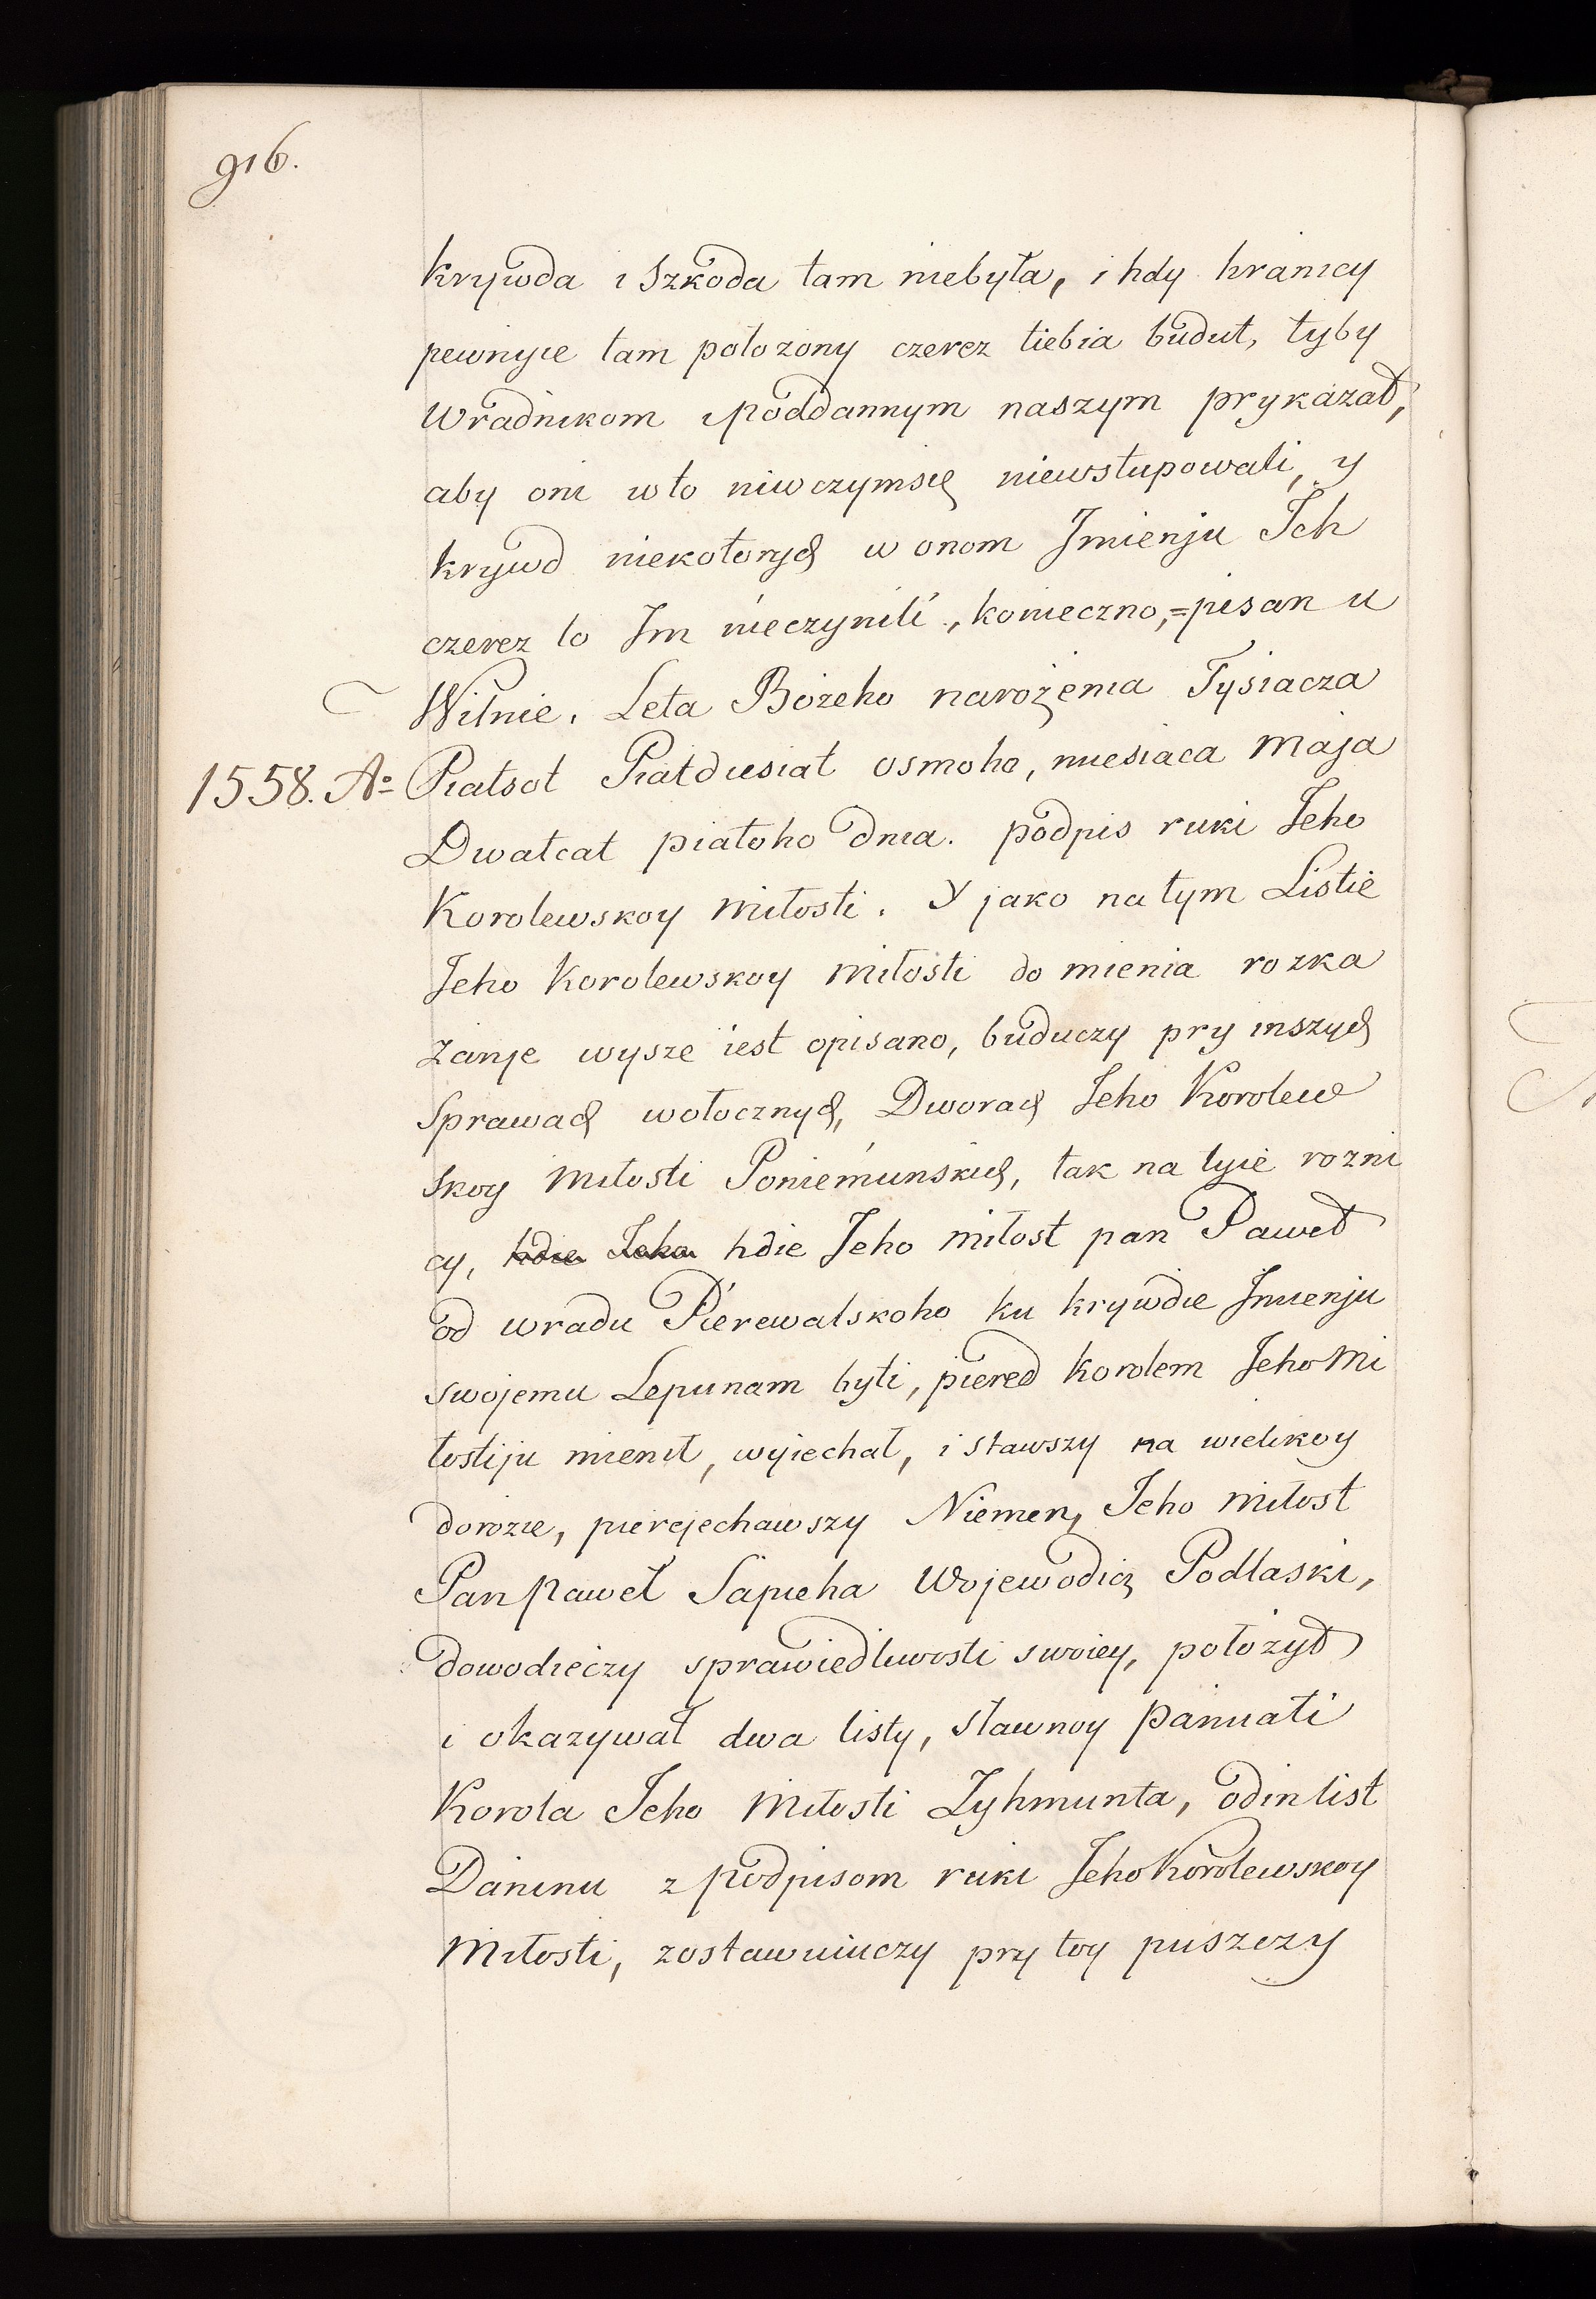 916.
krywda i szkoda tam niebyła, i hdy hranicy
pewnyie tam położony czerez tiebia budut, tyby
Wradnikom i poddannym naszym prykazał,
aby oni wto niwczymsię niewstupowali, y
krywd niekotorych w onom Jmienju Ich
czerez to Im nieczynili, konieczno,=pisan u
Wilnie. Leta Bożeho narożenia Tysiacza
1558. Ao Piatsot Piatdiesiat osmoho, miesiaca Maja
Dwatcat piatoho dnia. podpis ruki Jeho
Korolewskoy Miłosti. Y jako na tym Listie
Jeho Korolewskoy Miłosti do mienia rozka
zanje wysze iest opisano, buduczy pry inszych
Sprawach wołocznych, Dworach Jeho Korolew
skoy Miłosti Poniemunskich, tak na tyie rozni
cy, hdie Jeho hdie Jeho miłost pan Paweł
od wradu Pierewalskoho ku krywdie Jmienju
swojemu Lepunam byti, piered Korolem Jeho Mi
łostiju mienił, wyiechał, i stawszy na wielikoy
dorozie, pierejechawszy Niemen, Jeho Miłost
Pan Paweł Sapieha Wojewodicz Podlaski,
dowodieczy sprawiedliwosti swoiey, położył
i okazywał dwa listy, sławnoy Pamiati
Korola Jeho Miłosti Zyhmunta, odin list
Daninu z podpisom ruki Jeho Korolewskoy
Miłosti, zostawuiuczy pry toy puszczy